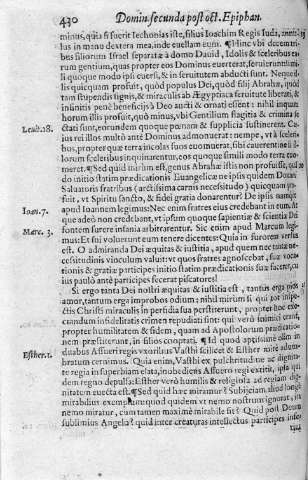 430 Domin. secunda post oct. Epiphan.
minus, quia si fuerit Iechonias iste, filius Ioachim Regis Iuda, annulus
in manu dextera mea, inde euellam eum. ¶ Hinc vbi decem tribus
filiorum Israel separatæ à domo Dauid, Idolis & sceleribus
rum gentium, quas propter eos Dominus euerterat, feruirent
li quoque modo ipsi euersi, & in seruitutem abducti sunt. Neque
lis quicquam profuit, quòd populus Dei, quòd filij Abrahæ, quòd
tum stupendis signis, & miraculis ab Ægyptiaca seruitute liberati, &
infinitis penè beneficijs à Deo aucti & ornati essent: nihil inquam
horum illis profuit, quò minus, vbi Gentilium flagitia & crimina
Leuit. 18. ctati sunt, eorundem quoque pœnam & supplicia sustinerent. Cuius
rei illos multò antè Dominus admonuerat: nempe, vt à sceleribus,
propter quæ terra incolas suos euomuerat, sibi cauerent
lorum sceleribus inquinarentur, eos quoque simili modo terra
meret. ¶ Sed quid mirum est, genus Abrahæ istis non profuisse,
do initio statim prædicationis Euangelicæ ne ipsis quidem Domini
Saluatoris fratribus (arctissima carnis necessitudo) quicquam
fuit, vt Spiritu sancto, & fidei gratia donarentur? De ipsis namque
Ioan. 7. apud Ioannem legimus: Nec enim fratres eius credebant in eum.
que adeò non credebant, vt ipsum quoque sapientiæ & scientiæ
Marc. 3. fontem furere insania arbitrarentur. Sic enim apud Marcum
mus: Et sui volebant eum tenere dicentes: Quia in furorem versus
est. O admiranda Dei æquitas & iustitia, apud quem nec tanta
cessitudinis vinculum valuit: vt quos fratres agnoscebat, suæ
tionis & gratiæ participes initio statim prædicationis suæ faceret,
ius paulò antè participes fecerat piscatores.
Si ergo tanta Dei nostri æquitas & iustitia est, tantus erga pios
amor, tantum erga improbos odium: nihil mirum si qui
ctis Christi miraculis in perfidia sua perstiterunt, propter hoc
crandum infidelitatis crimen repudiati sunt: qui verò
propter humilitatem & fidem, quam ad Apostolorum prædicationem
præstiterunt, in filios cooptati. ¶ Id quod aptissimè olim in
Esther. 1. duabus Assueri regis vxoribus Vasthi scilicet & Esther
bratum cernimus. Quia enim, Vasthi ex pulchritudine ac dignitate
regia in superbiam elata, inobediens Assuero regi extitit,
dem regno depulsa: Esther verò humilis & religiosa ad regiam
nitatem euecta est. ¶ Sed quid hæc miramur? Subijciam, aliud longè
mirabilius exemplum quod quidem vt nemo nostrum ignorat,
nemo miratur, cum tamen maximè mirabile sit? Quid post Deum
sublimius Angela? quid inter creaturas intellectus participes